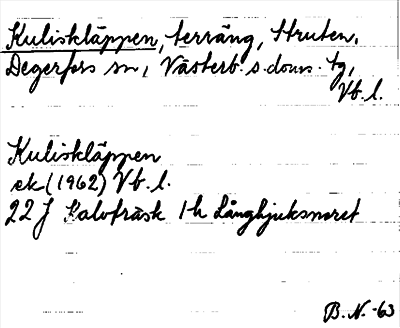 Kuliskläppen, terräng, Struten,
Degerfors sn, Västerb. s. doms. tg,
Vb. l.
Kuliskläppen
ek (1962) Vb. l.
22 J Kalvträsk 1 h Långhjuksmoret
B. N. -63